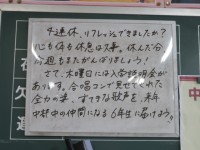 4連休、リフレッシュできましたか?
心も体も休息は大事。休んだ分
今週もまたがんばりましょう!
さて、木曜日には入学説明会が
あります。合唱コンで見せてくれた
全力の姿、すてきな歌声を、来年
中村中の仲間になる6年生に届けよう。
欠
中